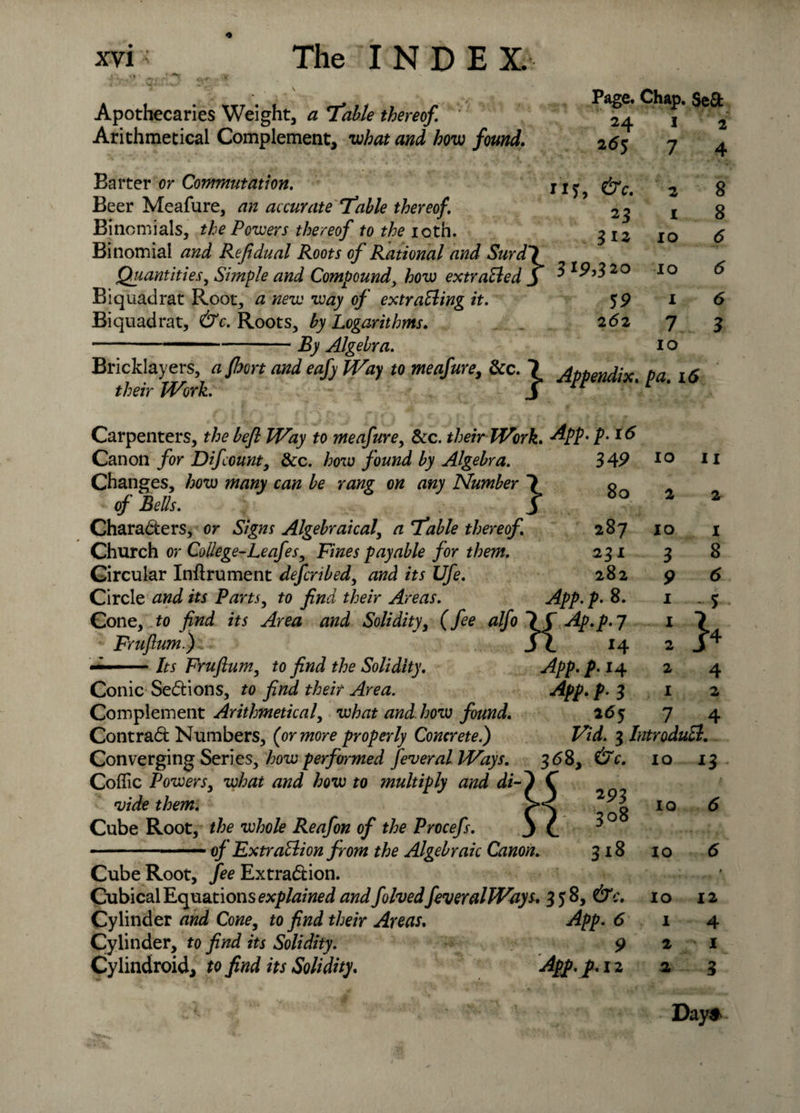 xvi The INDEX.
Page. Chap. Sect
Apothecaries Weight, a Table thereof. 24 1 2
Arithmetical Complement, what and how found. 265 7 4
Barter or Commutation. 115, &c. 2 8
Beer Meaſure, an accurate Table thereof. 23 1 8
Binomials, the Powers thereof to the 10th. 312 10 6
Binomial and Reſidual Roots of Rational and Surd }
Quantities, Simple and Compound, how extracted } 319,320 10 6
Biquadrat Root, a new way of extracting it. 59 1 6
Biquadrat, &c. Roots, by Logarithms. 262 7 3
———— By Algebra. 10
Bricklayers, a ſhort and eaſy Way to meaſure, &c. } Appendix. pa. 16
their Work. }
Carpenters, the beſt Way to meaſure, &c. their Work. App. p. 16
Canon for Diſcount, &c. how found by Algebra. 349 10 11
Changes, how many can be rang on any Number } 80 2 2
of Bells. }
Characters, or Signs Algebraical, a Table thereof. 287 10 1
Church or College-Leaſes, Fines payable for them. 231 3 8
Circular Inſtrument deſcribed, and its Uſe. 282 9 6
Circle and its Parts, to find their Areas. App. p. 8. 1 5
Cone, to find its Area and Solidity, (ſee alſo } { Ap. p. 7 1 } 4
Fruſtum.) } { 14 2 }
—— Its Fruſtum, to find the Solidity. App. p. 14 2 4
Conic Sections, to find their Area. App. p. 3 1 2
Complement Arithmetical, what and how found. 265 7 4
Contract Numbers, (or more properly Concrete.) Vid. 3 Introduct.
Converging Series, how performed ſeveral Ways. 368, &c. 10 13
Coſſic Powers, what and how to multiply and di- } { 293
vide them. } { 10 6
Cube Root, the whole Reaſon of the Proceſs. } { 308
———— of Extraction from the Algebraic Canon. 318 10 6
Cube Root, ſee Extraction.
Cubical Equations explained and ſolved ſeveral Ways. 358, &c. 10 12
Cylinder and Cone, to find their Areas. App. 6 1 4
Cylinder, to find its Solidity. 9 2 1
Cylindroid, to find its Solidity. App. p. 12 2 3
Days